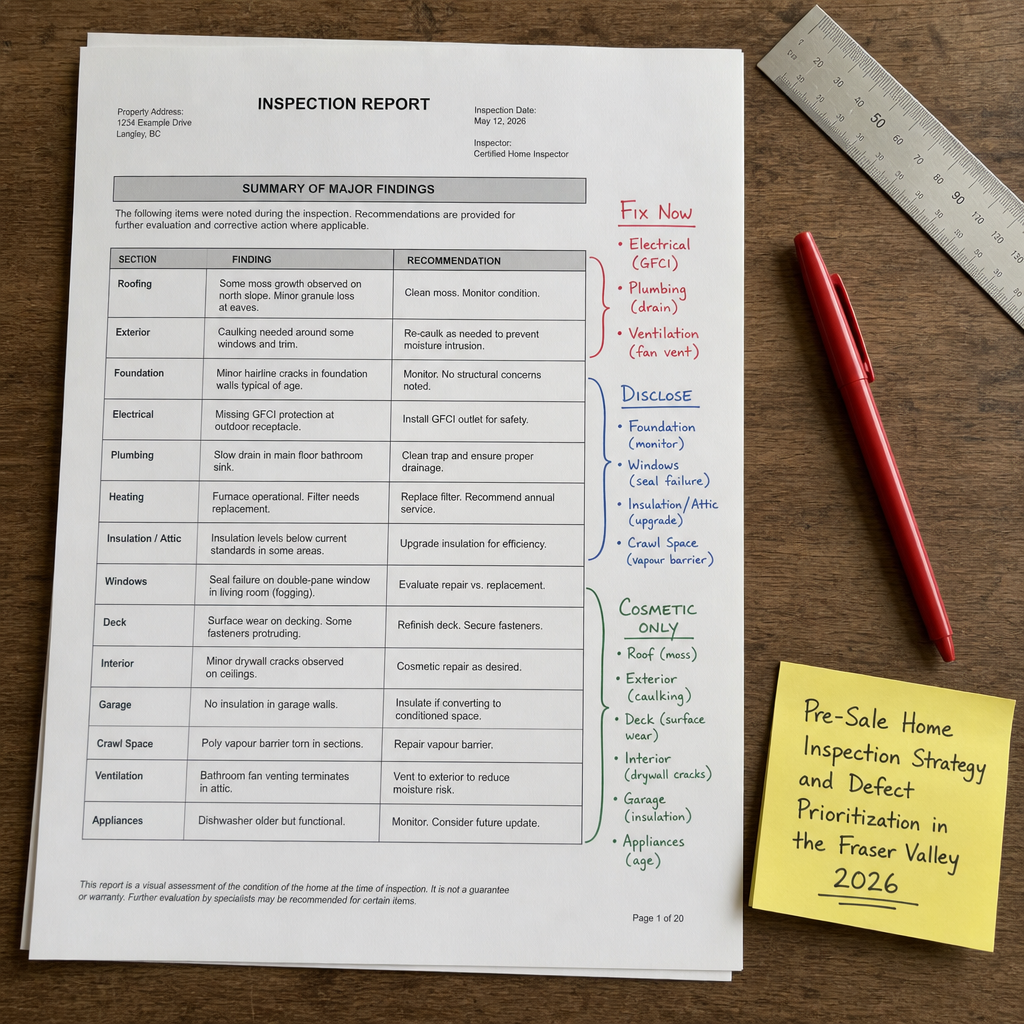 INSPECTION REPORT
Property Address:
1234 Example Drive
Langley, BC
Inspection Date:
May 12, 2026
Inspector:
Certified Home Inspector
SUMMARY OF MAJOR FINDINGS
The following items were noted during the inspection. Recommendations are provided for
further evaluation and corrective action where applicable.
SECTION FINDING RECOMMENDATION
Roofing
Some moss growth observed on
north slope. Minor granule loss
at eaves.
Clean moss. Monitor condition.
Exterior
Caulking needed around some
windows and trim.
Re-caulk as needed to prevent
moisture intrusion.
Foundation
Minor hairline cracks in foundation
walls typical of age.
Monitor. No structural concerns
noted.
Electrical
Missing GFCI protection at
outdoor receptacle.
Install GFCI outlet for safety.
Plumbing
Slow drain in main floor bathroom
sink.
Clean trap and ensure proper
drainage.
Heating
Furnace operational. Filter needs
replacement.
Replace filter. Recommend annual
service.
Insulation / Attic
Insulation levels below current
standards in some areas.
Upgrade insulation for efficiency.
Windows
Seal failure on double-pane window
in living room (fogging).
Evaluate repair vs. replacement.
Deck
Surface wear on decking. Some
fasteners protruding.
Refinish deck. Secure fasteners.
Interior
Minor drywall cracks observed
on ceilings.
Cosmetic repair as desired.
Garage
No insulation in garage walls.
Insulate if converting to
conditioned space.
Crawl Space
Poly vapour barrier torn in sections.
Repair vapour barrier.
Ventilation
Bathroom fan venting terminates
in attic.
Vent to exterior to reduce
moisture risk.
Appliances
Dishwasher older but functional.
Monitor. Consider future update.
This report is a visual assessment of the condition of the home at the time of inspection. It is not a guarantee
or warranty. Further evaluation by specialists may be recommended for certain items.
Page 1 of 20
Fix Now
• Electrical
(GFCI)
• Plumbing
(drain)
• Ventilation
(fan vent)
DISCLOSE
• Foundation
(monitor)
• Windows
(seal failure)
• Insulation/Attic
(upgrade)
• Crawl Space
(vapour barrier)
COSMETIC
ONLY
• Roof (moss)
• Exterior
(caulking)
• Deck (surface
wear)
• Interior
(drywall cracks)
• Garage
(insulation)
• Appliances
(age)
Pre-Sale Home
Inspection Strategy
and Defect
Prioritization in
the Fraser Valley
2026